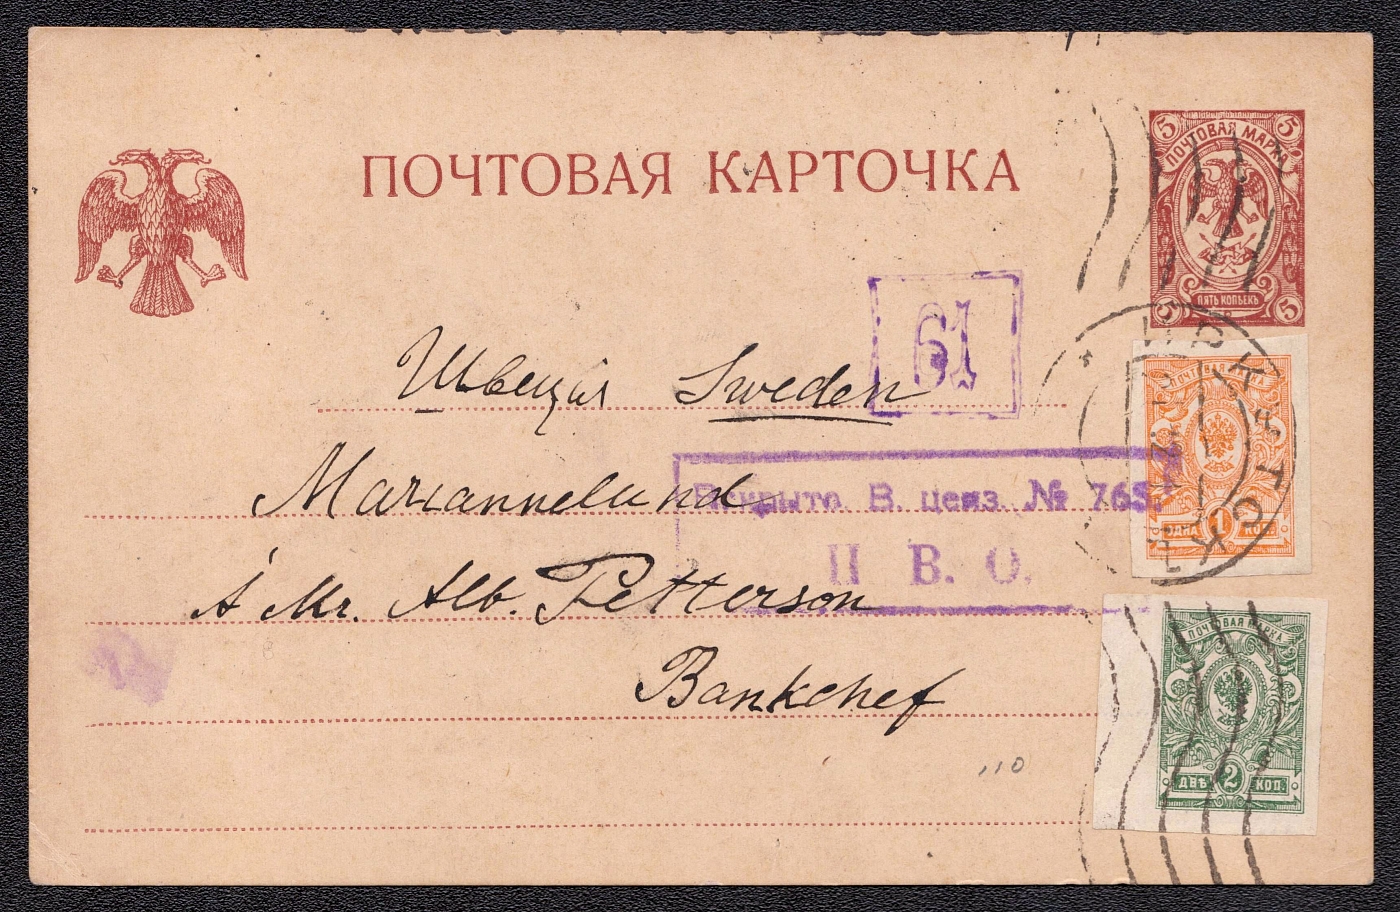 ПОЧТОВАЯ КАРТОЧКА
5 5
ПОЧТОВАЯ МАРКА
ПЯТЬ КОПѢЕКЪ
5 5
61
Швеція Sweden
Mariannelund
Вскрыто В. ценз. № 765.
П В. О.
A Mr. Alb. Petterson
Bankchef
110
ИРКУТСК
ПОЧТОВАЯ МАРКА
ОДНА 1 КОП.
ПОЧТОВАЯ МАРКА
ДВѢ 2 КОП.